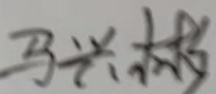 马兴彬